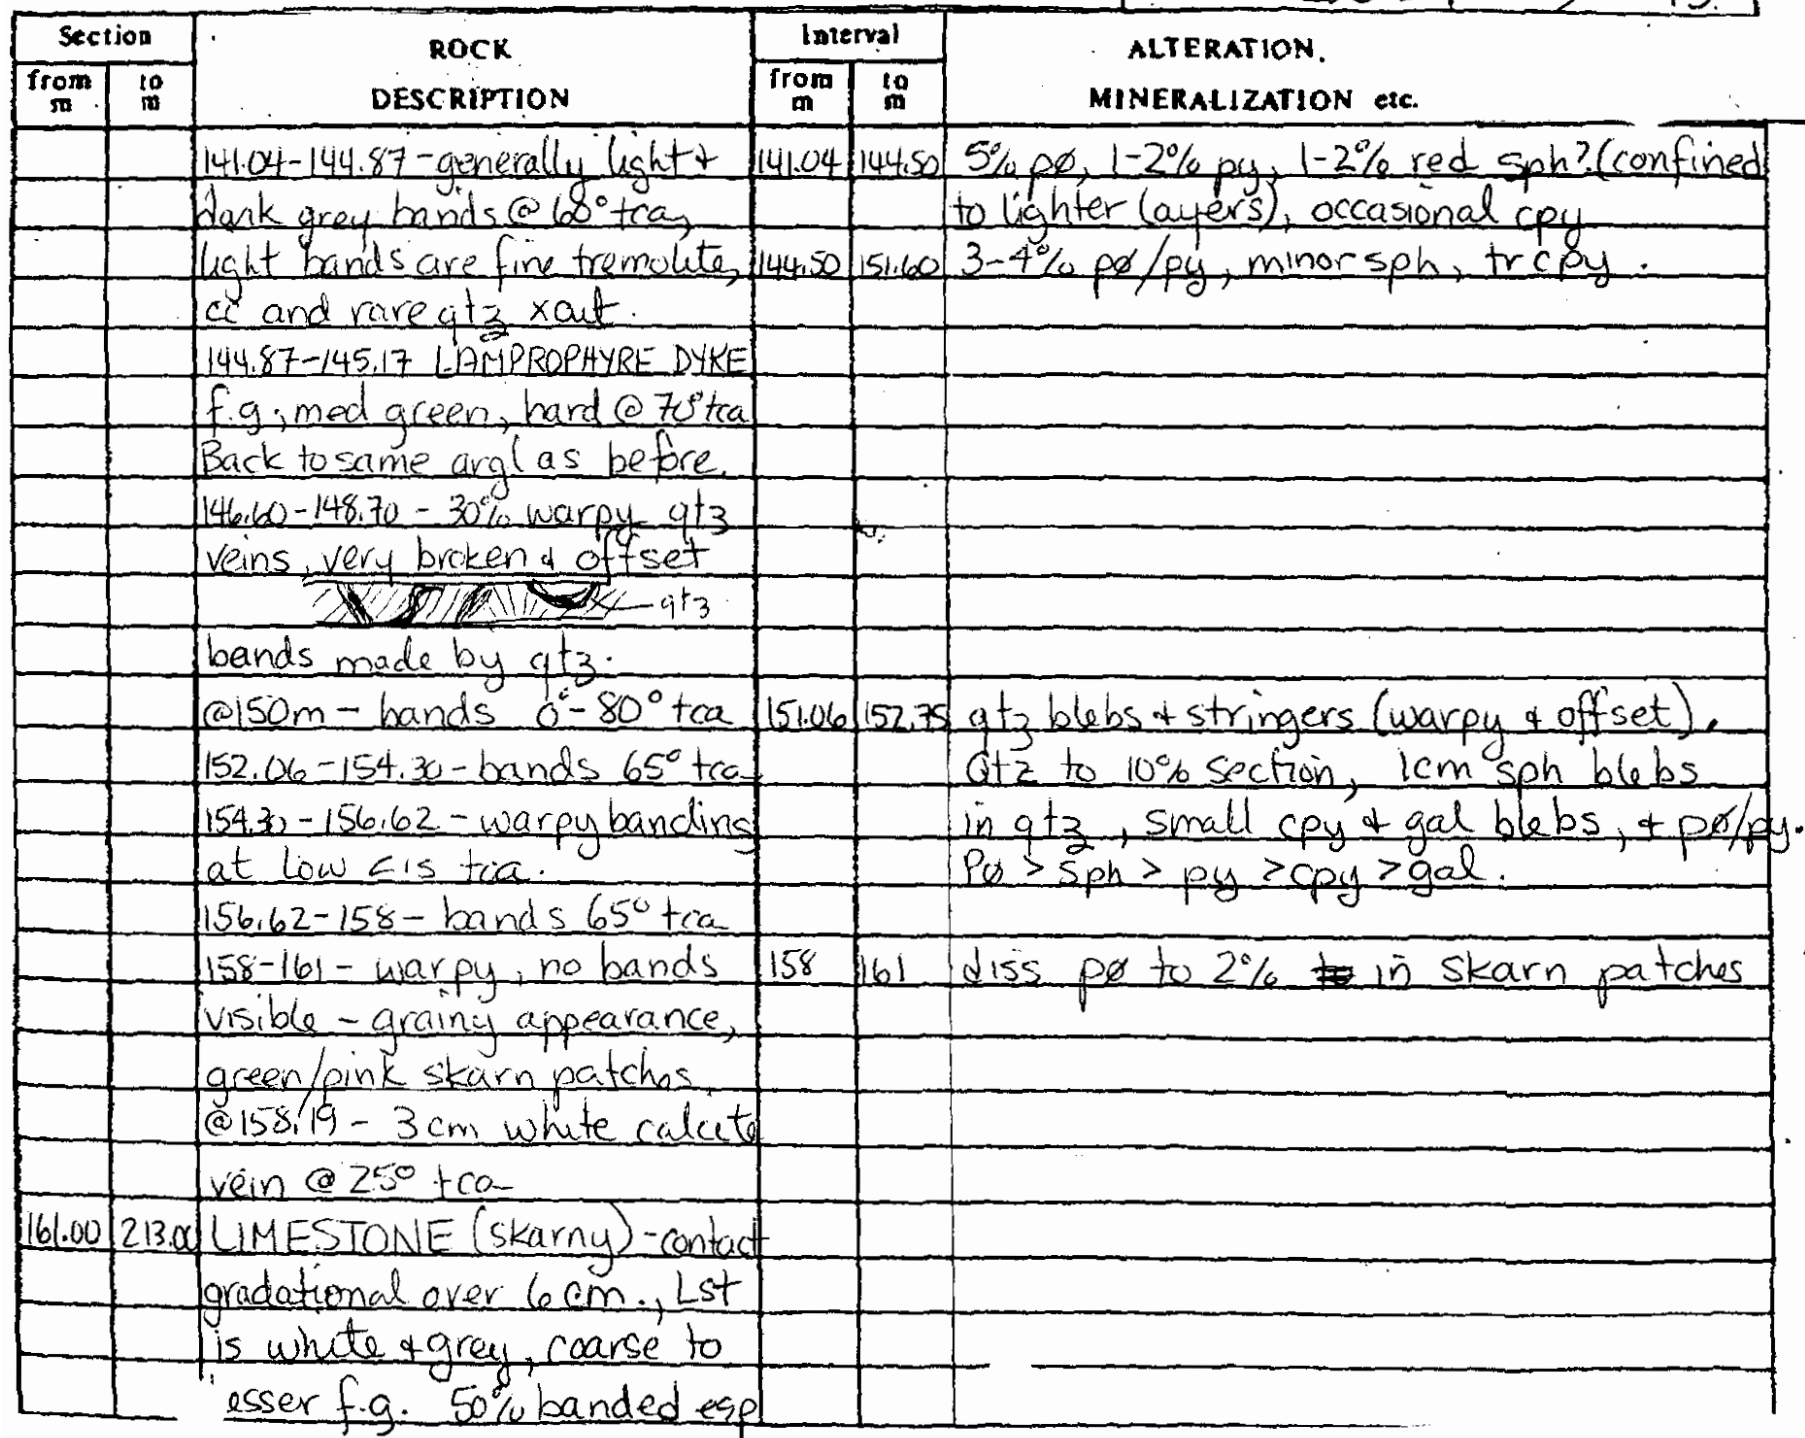 Section ROCK Interval ALTERATION.
from to DESCRIPTION from to MINERALIZATION etc.
m m m m
141.04-144.87-generally light & 141.04 144.50 5% pø, 1-2% py, 1-2% red sph? (confined
dark grey bands @ 68° tca, to lighter layers), occasional cpy
light bands are fine tremolite, 144.50 151.60 3-4% pø/py, minor sph, tr cpy.
cc and rare qtz xcut.
144.87-145.17 LAMPROPHYRE DYKE
f.g., med green, hard @ 70° tca
Back to same argl as before.
146.60-148.70 - 30% warpy qtz
veins, very broken & offset
qtz
bands made by qtz.
@150m - bands 0°-80° tca 151.06 152.75 qtz blebs & stringers (warpy & offset).
152.06-154.30-bands 65° tca Qtz to 10% section, 1cm sph blebs
154.30-156.62-warpy banding in qtz, small cpy & gal blebs, & pø/py.
at low <'s tca. Pø > sph > py > cpy > gal.
156.62-158- bands 65° tca
158-161- warpy, no bands 158 161 diss pø to 2% in skarn patches
visible - grainy appearance,
green/pink skarn patches
@158.19 - 3cm white calcite
vein @ 25° tca
161.00 213.00 LIMESTONE (skarny) -contact
gradational over 6cm., Lst
is white & grey, coarse to
esser f.g. 50% banded esp